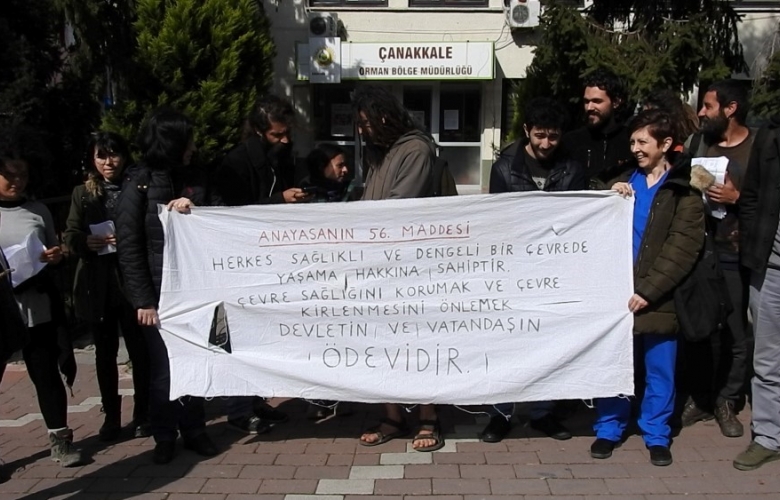 ÇANAKKALE
ORMAN BÖLGE MÜDÜRLÜĞÜ
ANAYASANIN 56. MADDESİ
HERKES SAĞLIKLI VE DENGELİ BİR ÇEVREDE
YAŞAMA HAKKINA SAHİPTİR.
ÇEVRE SAĞLIĞINI KORUMAK VE ÇEVRE
KİRLENMESİNİ ÖNLEMEK
DEVLETİN VE VATANDAŞIN
ÖDEVİDİR.